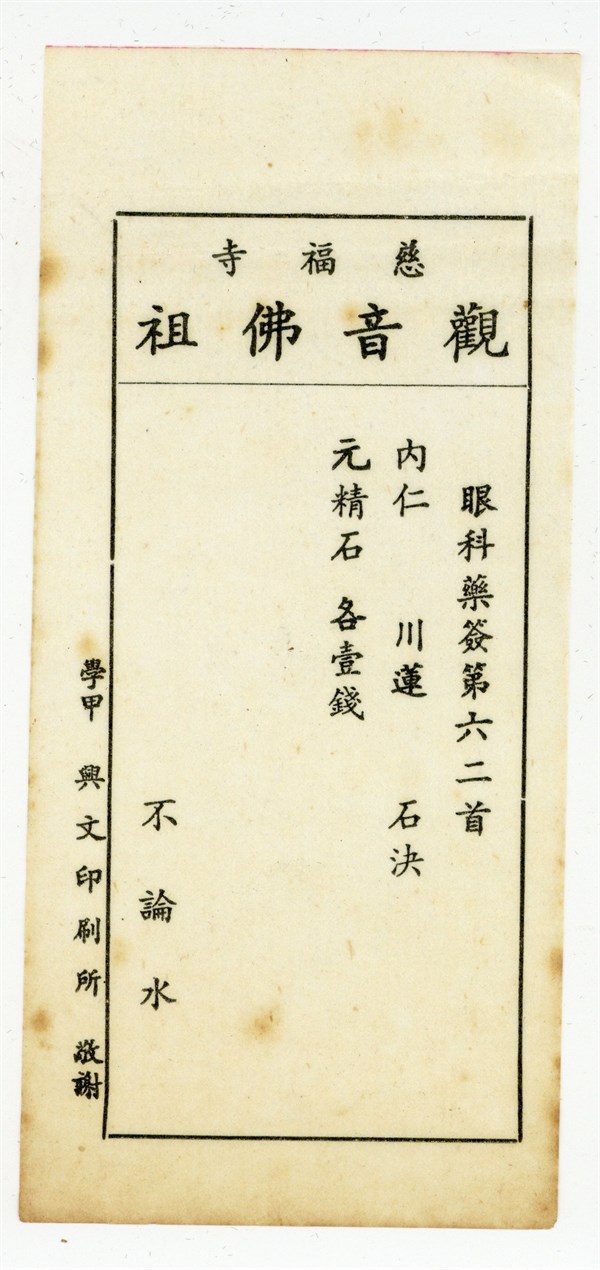 慈福寺
觀音佛祖
眼科藥簽第六二首
內仁 川蓮 石決
元精石 各壹錢
不論水
學甲 興文印刷所 敬謝